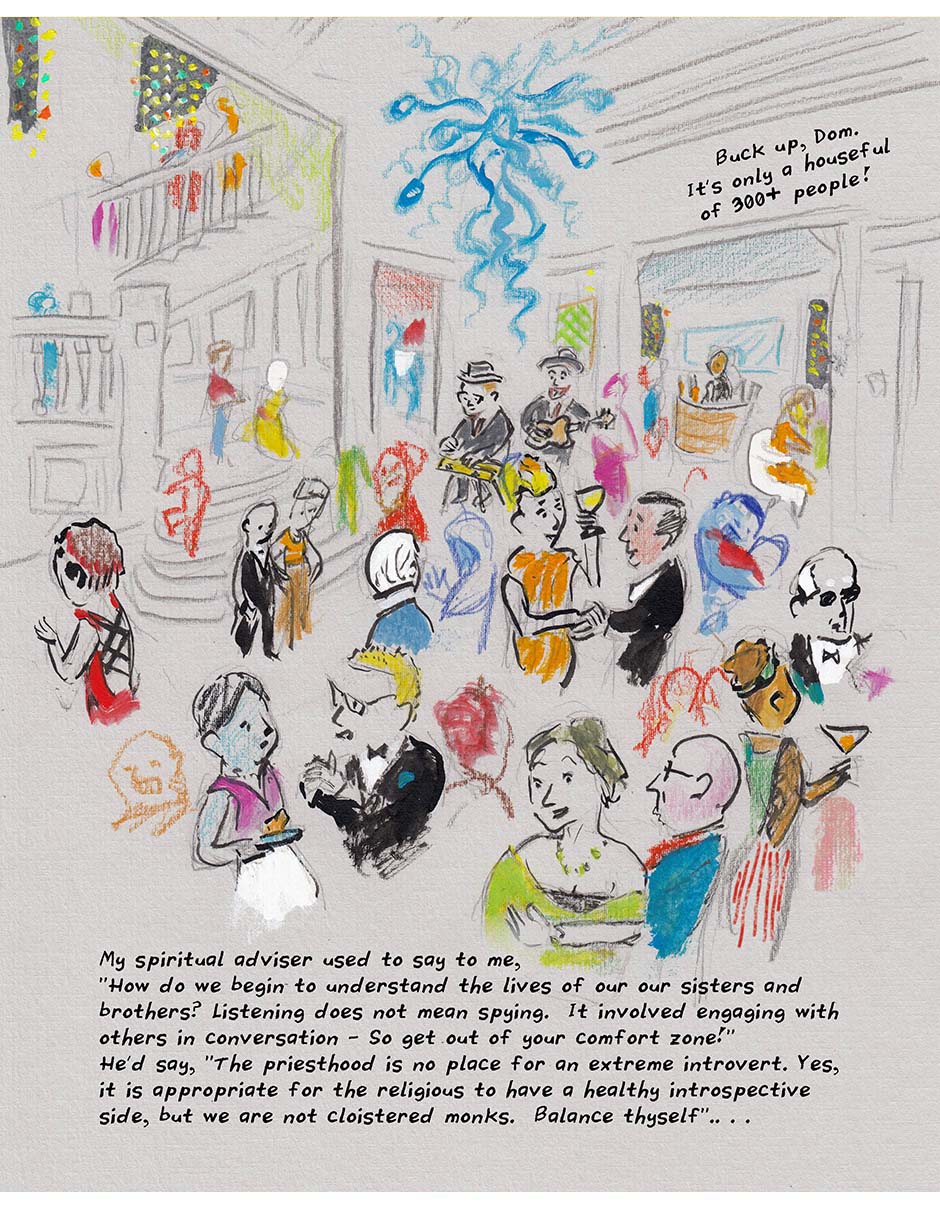 Buck up, Dom.
It's only a houseful
of 300+ people!
My spiritual adviser used to say to me,
"How do we begin to understand the lives of our our sisters and
brothers? Listening does not mean spying. It involved engaging with
others in conversation - So get out of your comfort zone!"
He'd say, "The priesthood is no place for an extreme introvert. Yes,
it is appropriate for the religious to have a healthy introspective
side, but we are not cloistered monks. Balance thyself".. . .